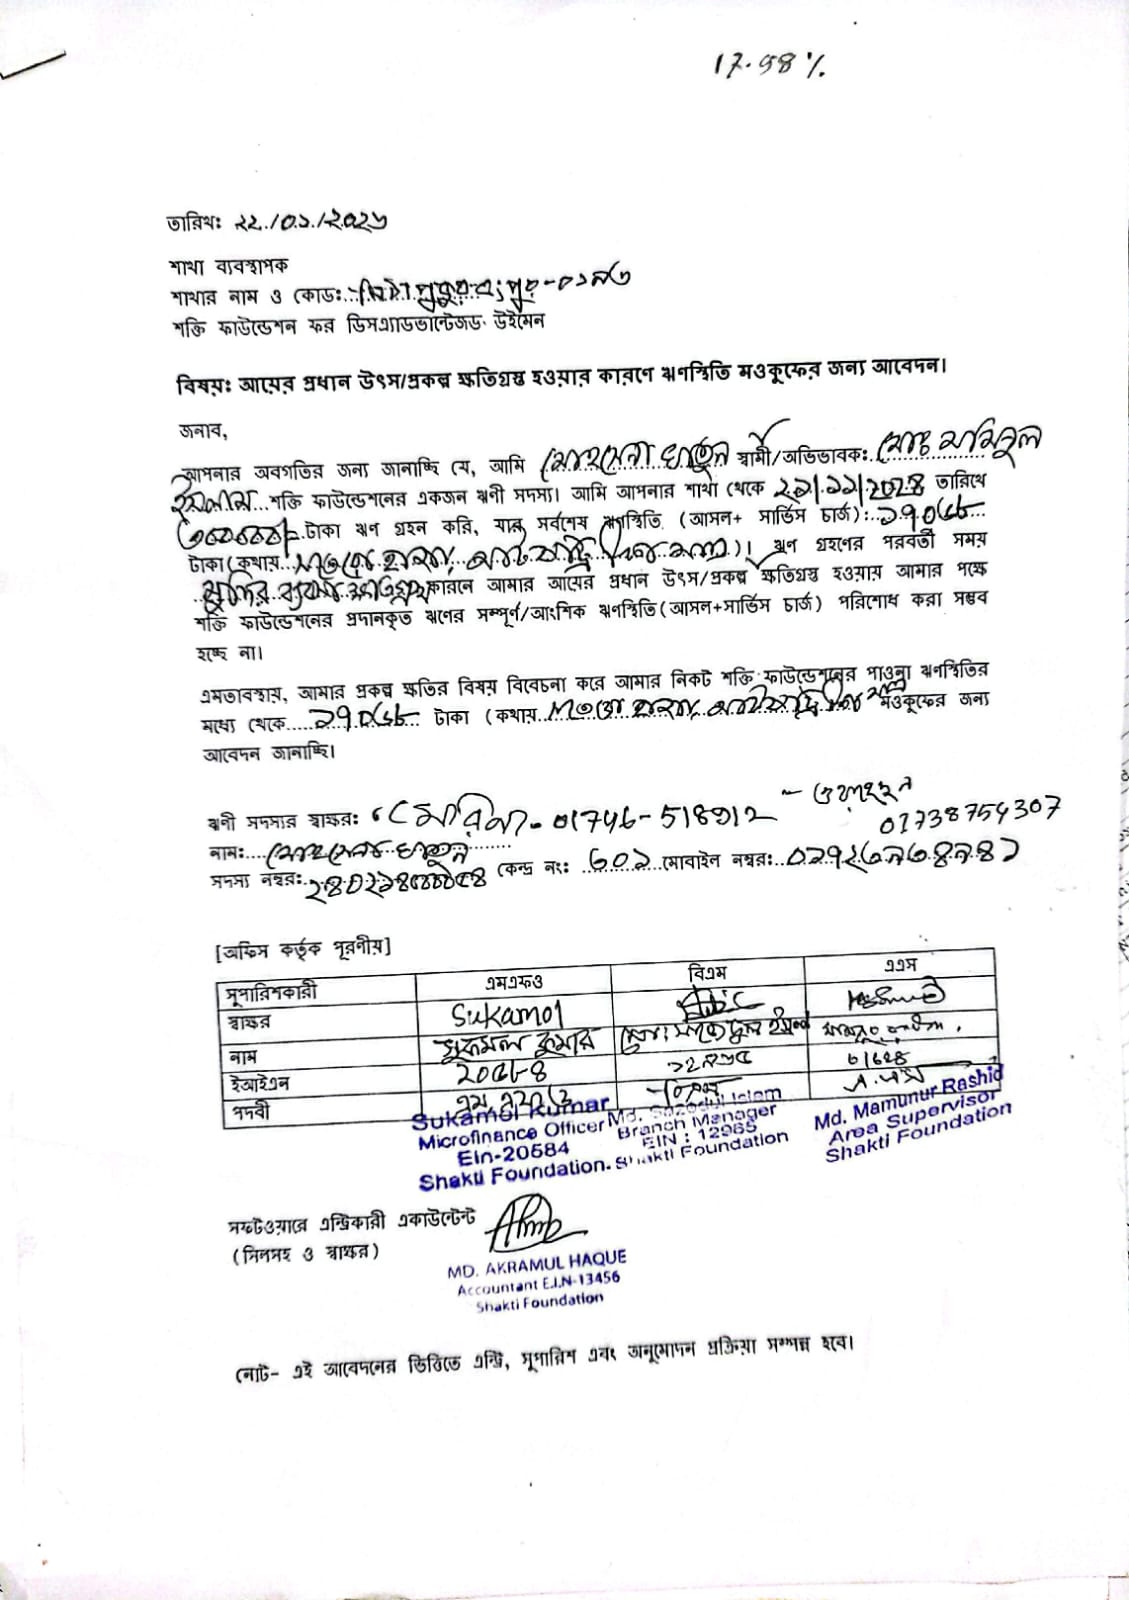 17.98%
তারিখঃ ২২/০১/২০২৬
শাখা ব্যবস্থাপক
শাখার নাম ও কোডঃ মিঠাপুকুর রংপুর-০১৯৩
শক্তি ফাউন্ডেশন ফর ডিসএ্যাডভান্টেজড উইমেন
বিষয়ঃ আয়ের প্রধান উৎস/প্রকল্প ক্ষতিগ্রস্ত হওয়ার কারণে ঋণস্থিতি মওকুফের জন্য আবেদন।
জনাব,
আপনার অবগতির জন্য জানাচ্ছি যে, আমি মোহসেনা খাতুন স্বামী/অভিভাবকঃ মোঃ মমিনুল
ইসলাম শক্তি ফাউন্ডেশনের একজন ঋনী সদস্য। আমি আপনার শাখা থেকে ২১/১১/2024 তারিখে
৩০০০০/= টাকা ঋণ গ্রহন করি, যার সর্বশেষ ঋণস্থিতি (আসল+ সার্ভিস চার্জ)ঃ ১৭০৬৮
টাকা (কথায় সতেরো হাজার আটষট্টি টাকা মাত্র)। ঋণ গ্রহণের পরবর্তী সময়
মুদির ব্যবসা ক্ষতিগ্রস্থ কারনে আমার আয়ের প্রধান উৎস/প্রকল্প ক্ষতিগ্রস্ত হওয়ায় আমার পক্ষে
শক্তি ফাউন্ডেশনের প্রদানকৃত ঋণের সম্পূর্ণ/আংশিক ঋণস্থিতি(আসল+সার্ভিস চার্জ) পরিশোধ করা সম্ভব
হচ্ছে না।
এমতাবস্থায়, আমার প্রকল্প ক্ষতির বিষয় বিবেচনা করে আমার নিকট শক্তি ফাউন্ডেশনের পাওনা ঋণস্থিতির
মধ্যে থেকে ১৭০৬৮ টাকা (কথায় সতেরো হাজার আটষট্টি টাকা মাত্র মওকুফের জন্য
আবেদন জানাচ্ছি।
ঋনী সদস্যর স্বাক্ষরঃ - 01746-518912
01738754307
নামঃ মোহসেনা খাতুন
সদস্য নম্বরঃ কেন্দ্র নংঃ ৬০১ মোবাইল নম্বরঃ ০১৭২৩৯৩৪৯৪১
[অফিস কর্তৃক পূরণীয়]
সুপারিশকারী এমএফও বিএম এএস
স্বাক্ষর Sukamol
নাম সুকমল কুমার
ইআইএন ২০৫৮৪ ১২৯৬৫
পদবী এম এফ ও
Sukamol Kumar
Microfinance Officer
Ein-20584
Shakti Foundation.
Md. Sazedul Islam
Branch Manager
EIN : 12965
Shakti Foundation
Md. Mamunur Rashid
Area Supervisor
Shakti Foundation
সফটওয়ারে এন্ট্রিকারী একাউন্টেন্ট
(সিলসহ ও স্বাক্ষর)
MD. AKRAMUL HAQUE
Accountant E.I.N-13456
Shakti Foundation
নোট- এই আবেদনের ভিত্তিতে এন্ট্রি, সুপারিশ এবং অনুমোদন প্রক্রিয়া সম্পন্ন হবে।